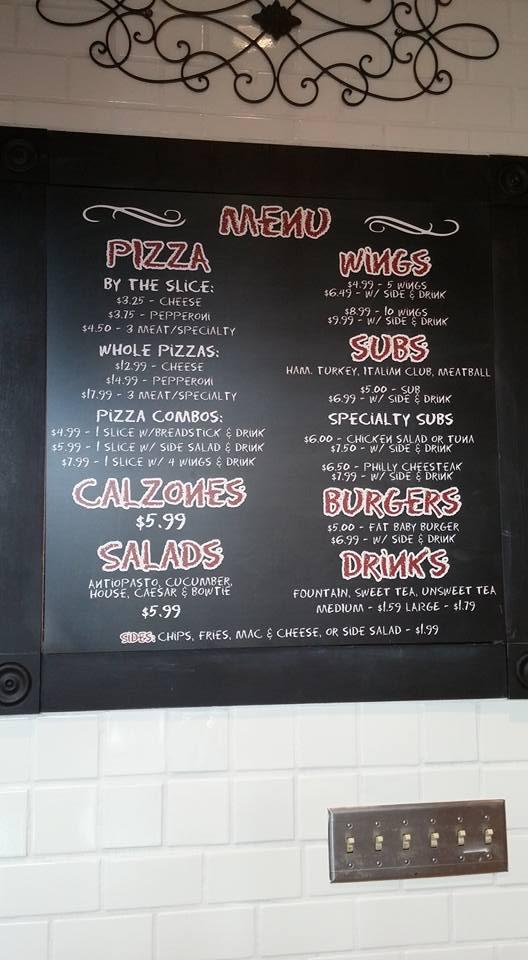 MENU
PIZZA
BY THE SLICE:
$3.25 - CHEESE
$3.75 - PEPPERONI
$4.50 - 3 MEAT/SPECIALTY
WHOLE PIZZAS:
$12.99 - CHEESE
$14.99 - PEPPERONI
$17.99 - 3 MEAT/SPECIALTY
PIZZA COMBOS:
$4.99 - 1 SLICE W/BREADSTICK & DRINK
$5.99 - 1 SLICE W/ SIDE SALAD & DRINK
$7.99 - 1 SLICE W/ 4 WINGS & DRINK
CALZONES
$5.99
SALADS
ANTIOPASTO, CUCUMBER,
HOUSE, CAESAR & BOWTIE
$5.99
WINGS
$4.99 - 5 WINGS
$6.49 - W/ SIDE & DRINK
$8.99 - 10 WINGS
$9.99 - W/ SIDE & DRINK
SUBS
HAM, TURKEY, ITALIAN CLUB, MEATBALL
$5.00 - SUB
$6.99 - W/ SIDE & DRINK
SPECIALTY SUBS
$6.00 - CHICKEN SALAD OR TUNA
$7.50 - W/ SIDE & DRINK
$6.50 - PHILLY CHEESTEAK
$7.99 - W/ SIDE & DRINK
BURGERS
$5.00 - FAT BABY BURGER
$6.99 - W/ SIDE & DRINK
DRINKS
FOUNTAIN, SWEET TEA, UNSWEET TEA
MEDIUM - $1.59 LARGE - $1.79
SIDES: CHIPS, FRIES, MAC & CHEESE, OR SIDE SALAD - $1.99